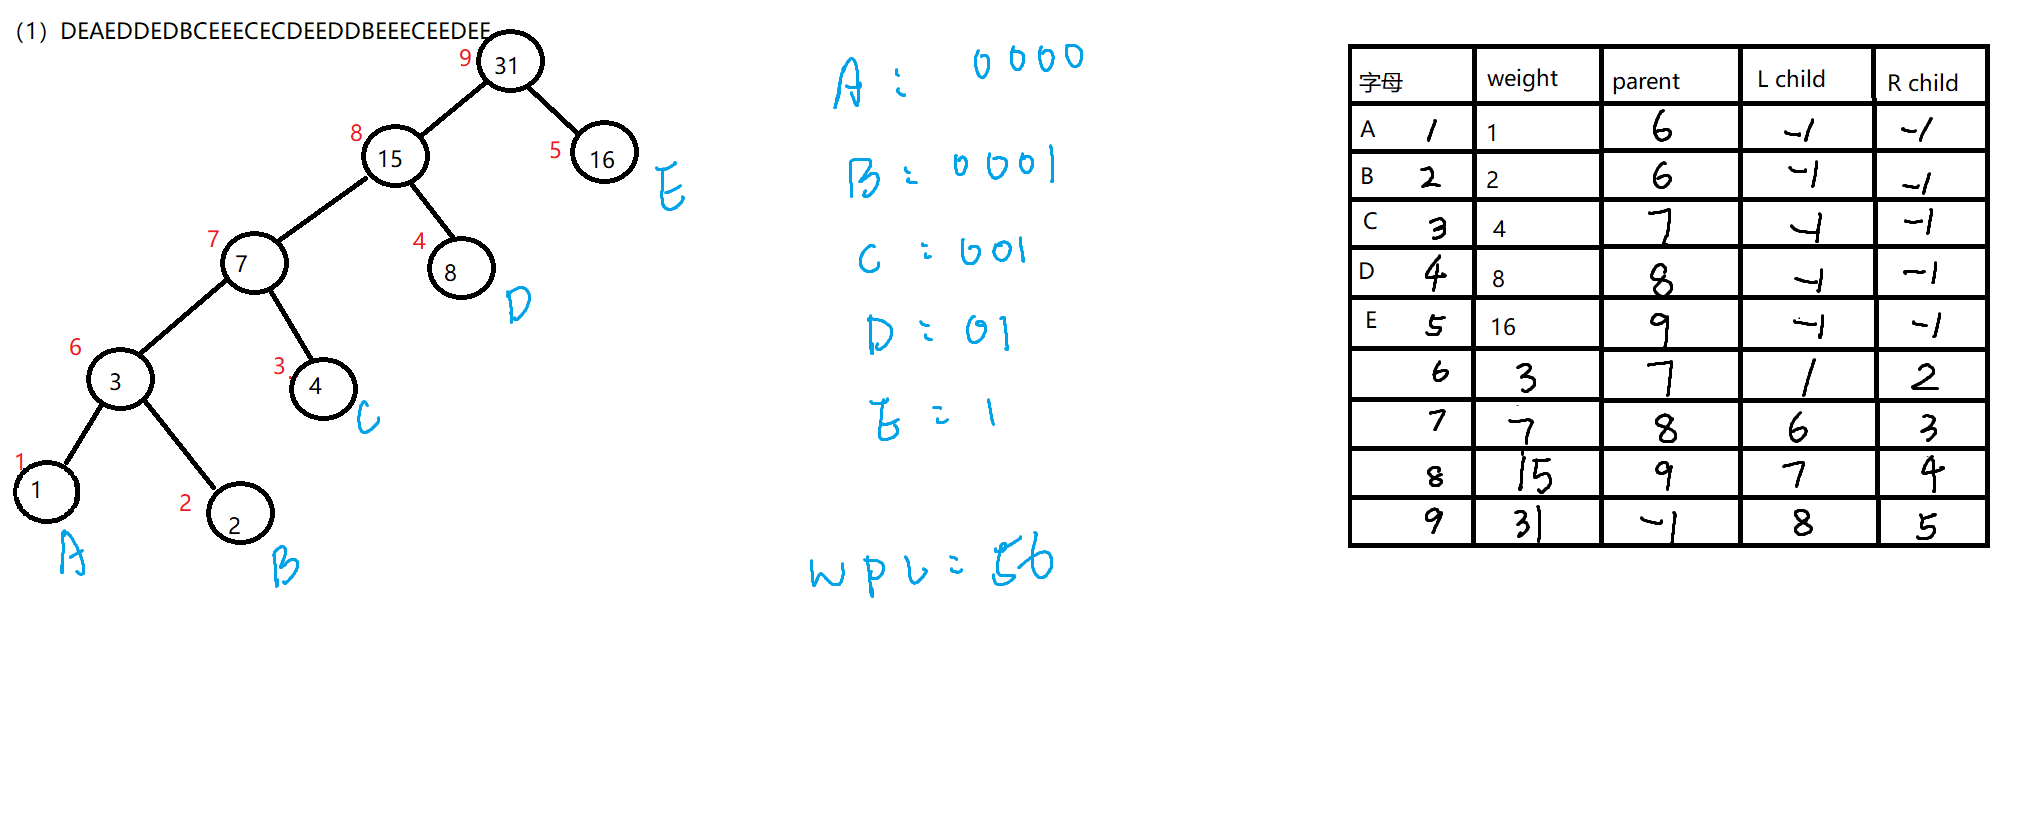 (1) DEAEDDEDBCEEECECDEEDDBEEECEEDEE
9 31
8 15
5 16 E
7 7
4 8 D
6 3
3 4 C
1 1 A
2 2 B
A: 0000
B: 0001
C: 001
D: 01
E = 1
WPL = 56
字母 weight parent L child R child
A 1 1 6 -1 -1
B 2 2 6 -1 -1
C 3 4 7 -1 -1
D 4 8 8 -1 -1
E 5 16 9 -1 -1
6 3 7 1 2
7 7 8 6 3
8 15 9 7 4
9 31 -1 8 5